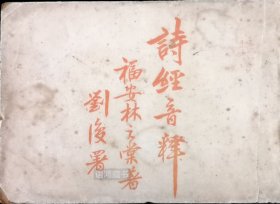 詩經音釋
福安林之棠著
劉復署